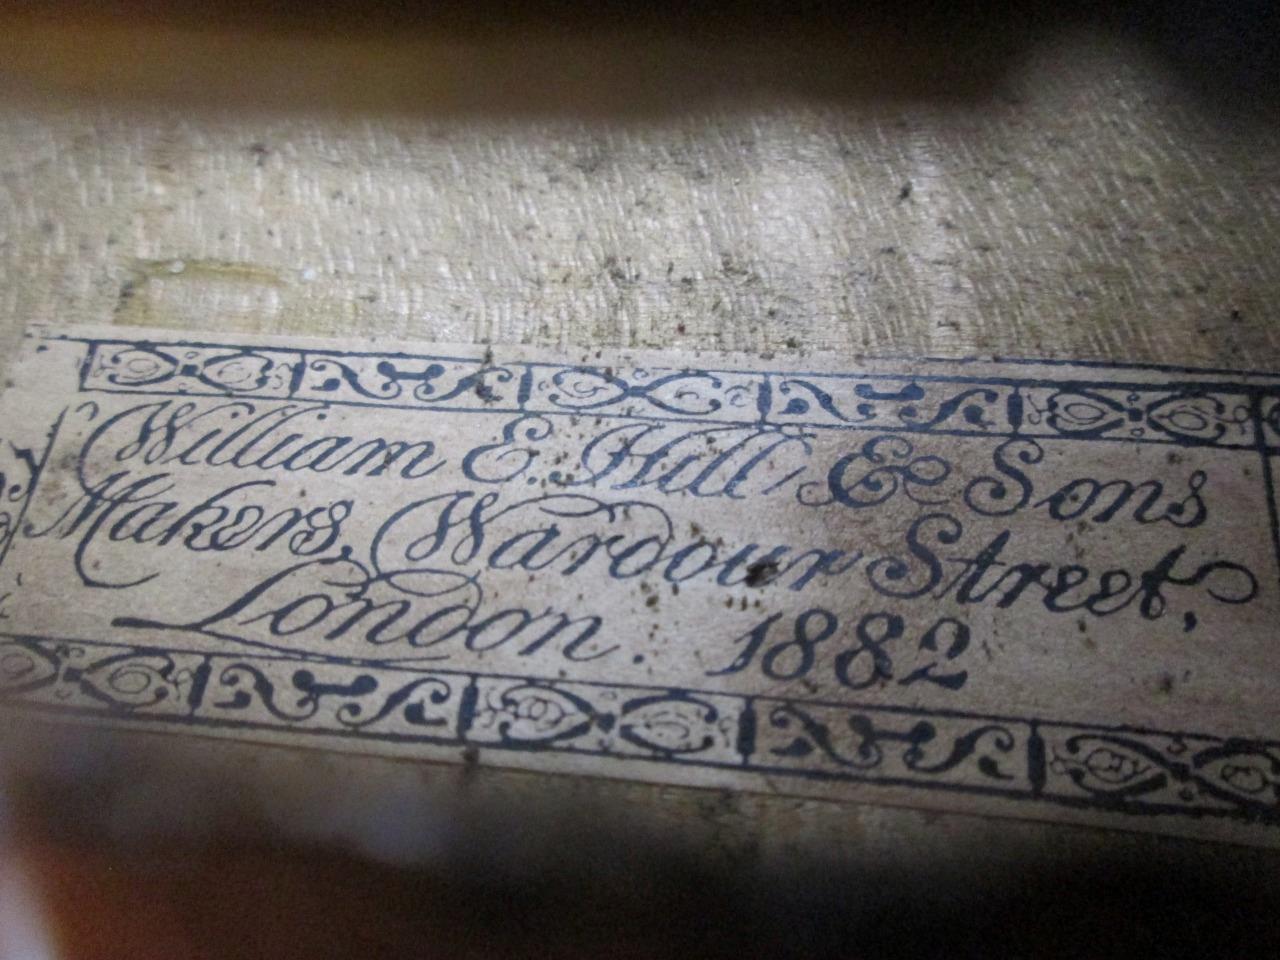 William E. Hill & Sons
Makers, Wardour Street,
London. 1882